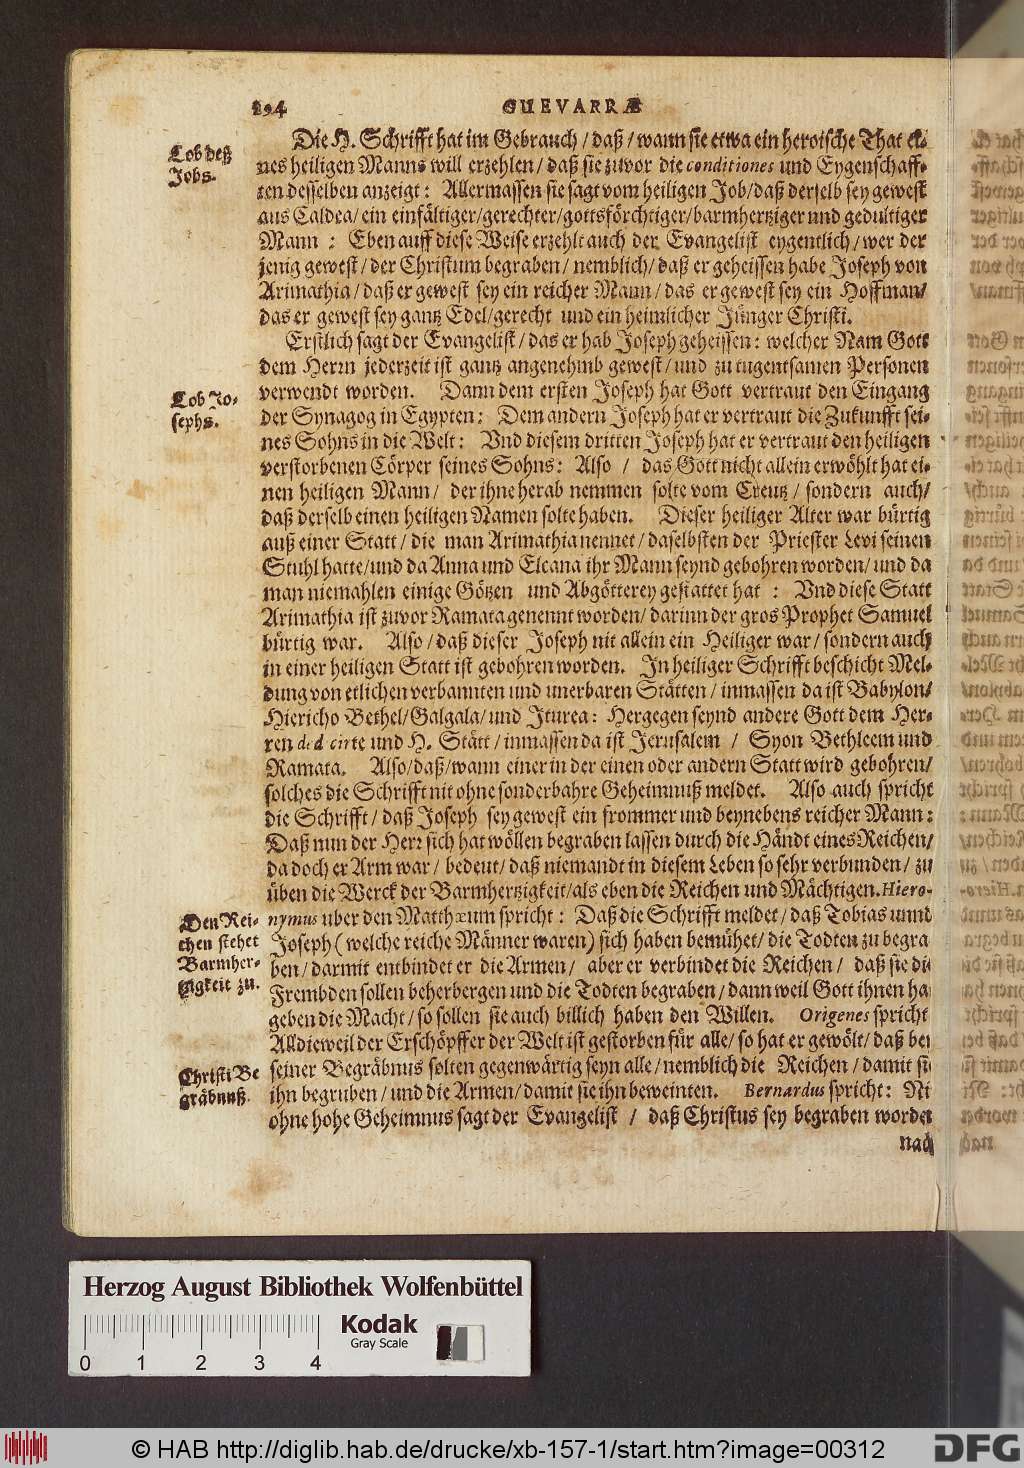 294 GUEVARRÆ
Die H. Schrifft hat im Gebrauch / daß / wann sie etwa ein heroische That ei-
nes heiligen Manns will erzehlen / daß sie zuvor die conditiones und Eygenschaff-
ten desselben anzeigt: Allermassen sie sagt vom heiligen Job / daß derselb sey gewest
aus Caldea / ein einfältiger / gerechter / gottsförchtiger / barmhertziger und gedultiger
Mann: Eben auff diese Weise erzehlt auch der Evangelist eygentlich / wer der
jenig gewest / der Christum begraben / nemblich / daß er geheissen habe Joseph von
Arimathia / daß er gewest sey ein reicher Mann / das er gewest sey ein Hoffman /
das er gewest sey gantz Edel / gerecht und ein heimlicher Jünger Christi.
Lob deß
Jobs.
Erstlich sagt der Evangelist / das er hab Joseph geheissen: welcher Nam Gott
dem Herrn jederzeit ist gantz angenehmb gewest / und zu tugentsamen Personen
verwendt worden. Dann dem ersten Joseph hat Gott vertraut den Eingang
der Synagog in Egypten: Dem andern Joseph hat er vertraut die Zukunfft sei-
nes Sohns in die Welt: Vnd diesem dritten Joseph hat er vertraut den heiligen
verstorbenen Cörper seines Sohns: Also / das Gott nicht allein erwöhlt hat ei-
nen heiligen Mann / der ihne herab nemmen solte vom Creutz / sondern auch /
daß derselb einen heiligen Namen solte haben. Dieser heiliger Alter war bürtig
auß einer Statt / die man Arimathia nennet / daselbsten der Priester Levi seinen
Stuhl hatte / und da Anna und Elcana ihr Mann seynd gebohren worden / und da
man niemahlen einige Götzen und Abgötterey gestattet hat: Vnd diese Statt
Arimathia ist zuvor Ramata genennt worden / darinn der gros Prophet Samuel
bürtig war. Also / daß dieser Joseph nit allein ein Heiliger war / sondern auch
in einer heiligen Statt ist gebohren worden. In heiliger Schrifft beschicht Mel-
dung von etlichen verbannten und unerbaren Stätten / inmassen da ist Babylon /
Hiericho Bethel / Galgala / und Iturea: Hergegen seynd andere Gott dem Her-
ren und H. Stätt / inmassen da ist Jerusalem / Syon Bethleem und
Ramata. Also / daß / wann einer in der einen oder andern Statt wird gebohren /
solches die Schrifft nit ohne sonderbahre Geheimnuß meldet. Also auch spricht
die Schrifft / daß Joseph sey gewest ein frommer und beynebens reicher Mann:
Daß nun der Herr sich hat wöllen begraben lassen durch die Händt eines Reichen /
da doch er Arm war / bedeut / daß niemandt in diesem Leben so sehr verbunden / zu
üben die Werck der Barmhertzigkeit / als eben die Reichen und Mächtigen. Hiero-
nymus uber den Matthæum spricht: Daß die Schrifft meldet / daß Tobias unnd
Joseph (welche reiche Männer waren) sich haben bemühet / die Todten zu begra
ben / darmit entbindet er die Armen / aber er verbindet die Reichen / daß sie di
Frembden sollen beherbergen und die Todten begraben / dann weil Gott ihnen ha
geben die Macht / so sollen sie auch billich haben den Willen. Origenes spricht
Alldieweil der Erschöpffer der Welt ist gestorben für alle / so hat er gewölt / daß bei
seiner Begräbnus solten gegenwärtig seyn alle / nemblich die Reichen / damit sie
ihn begruben / und die Armen / damit sie ihn beweinten. Bernardus spricht: Ni
ohne hohe Geheimnus sagt der Evangelist / daß Christus sey begraben worden
nach
Lob Jo-
sephs.
Den Rei-
chen stehet
Barmher-
tzigkeit zu.
Christi Be
gräbnuß.
Herzog August Bibliothek Wolfenbüttel
0 1 2 3 4
Kodak
Gray Scale
© HAB http://diglib.hab.de/drucke/xb-157-1/start.htm?image=00312
DFG